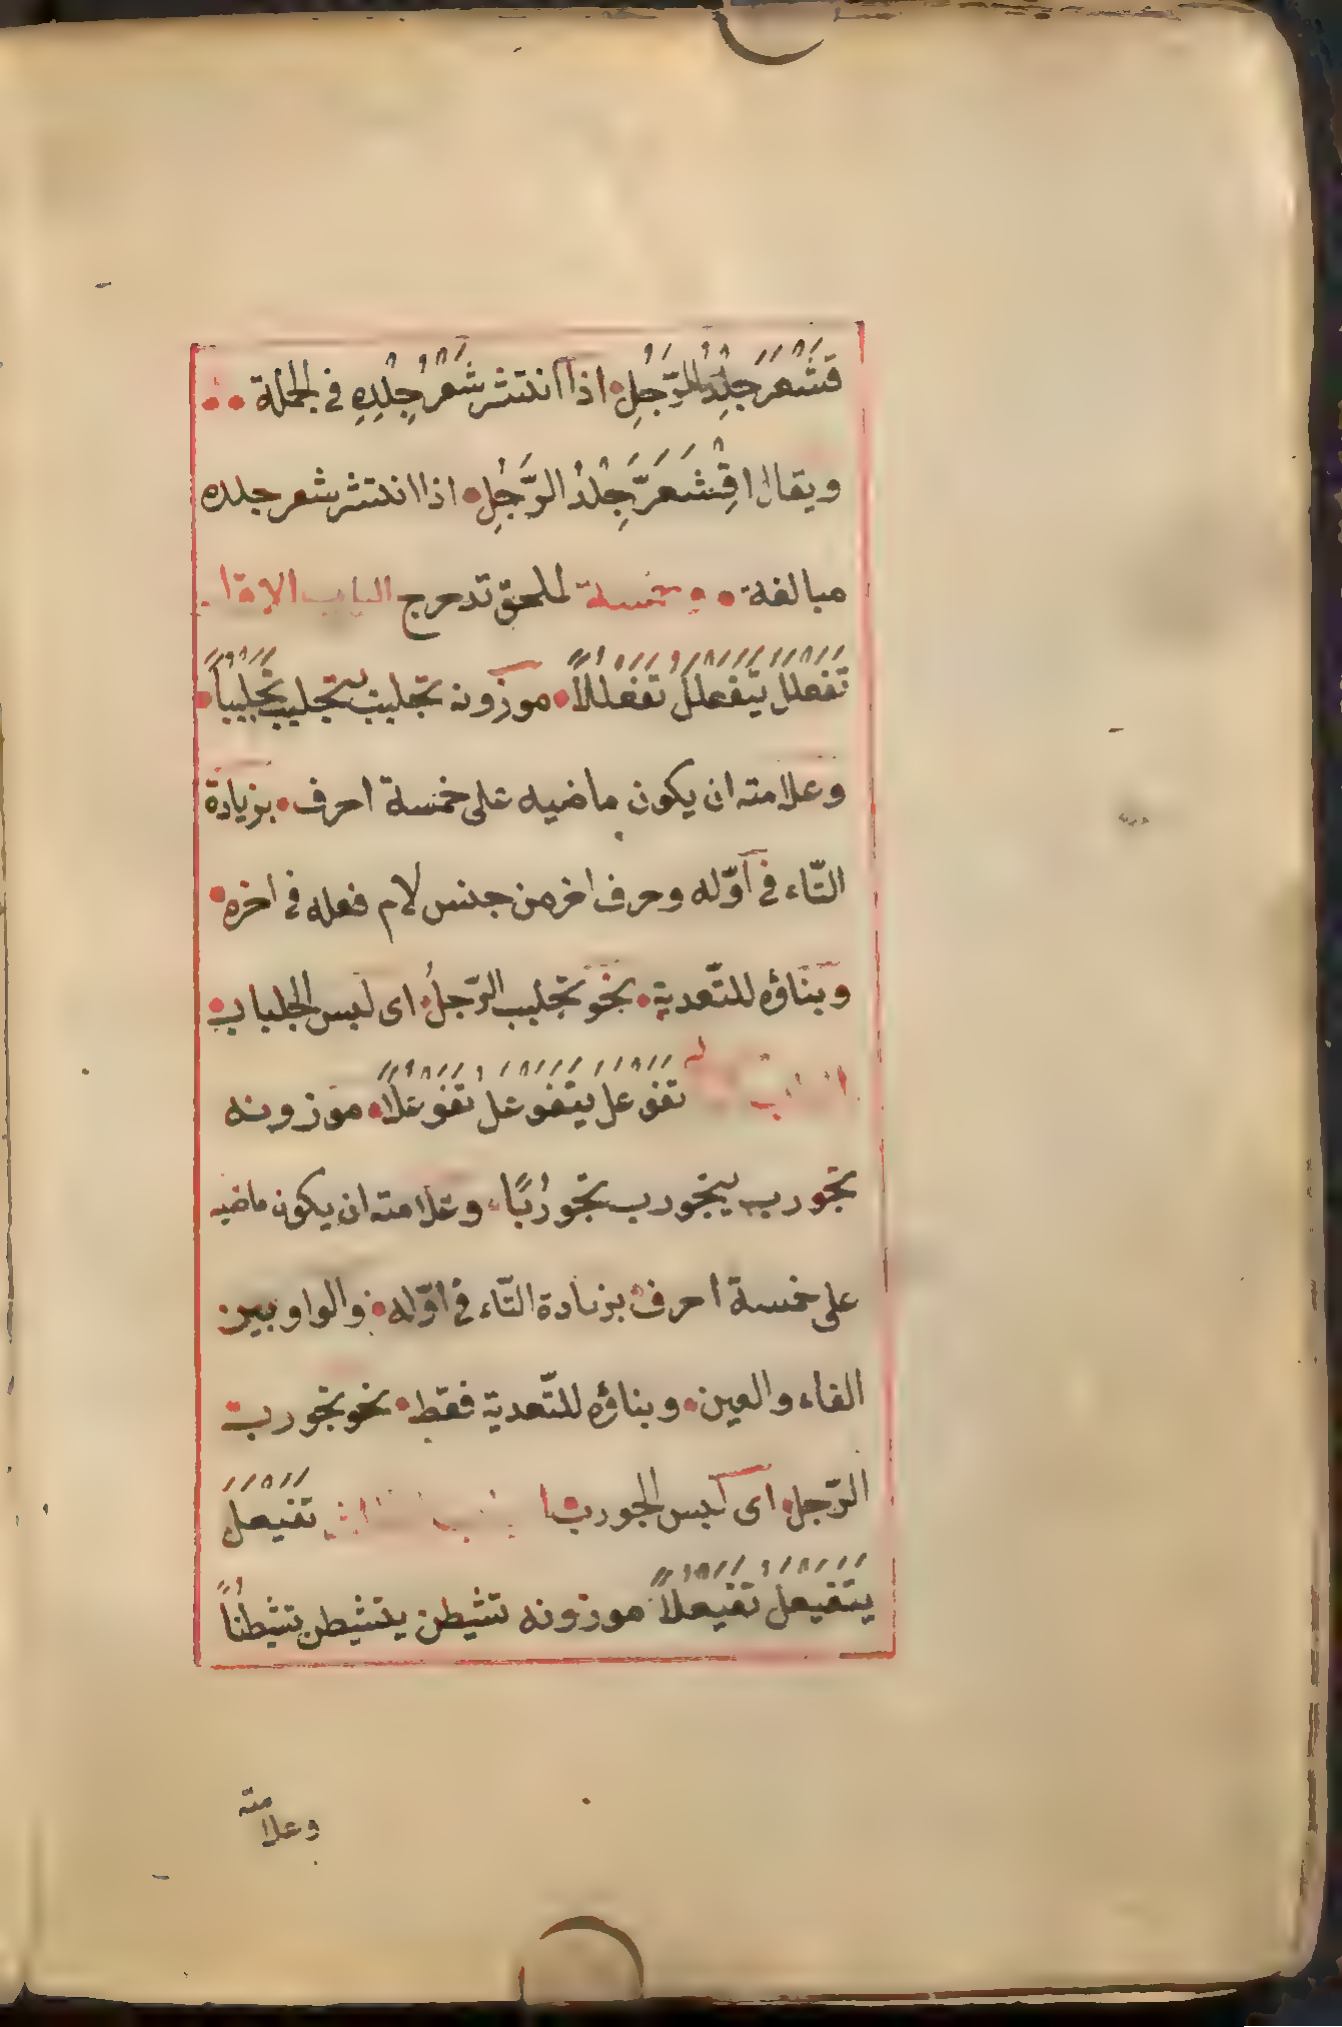 قَشْعَرَ جِلْدُ الرَّجُلِ اذا انتثر شَعْرُ جِلْدِهِ فى الجملة
ويقال اقْشَعَرَّ جِلْدُ الرَّجُلِ اذا انتثر شعر جلده
مبالغة خمسة لملحق تدحرج الباب الاول
تفعلل يتفعلل تفعللاً موزونه تجلبب يتجلبب تجلبباً
وعلامته ان يكون ماضيه على خمسة احرف بزيادة
التّاء فى اوّله وحرف اخر من جنس لام فعله فى اخره
وبناؤه للتّعدية نحو تجلبب الرّجلُ اى لبس الجلباب
الباب تفوعل يتفوعل تفوعلاً موزونه
تجورب يتجورب تجورُبًا وعلامته ان يكون ماضيه
على خمسة احرف بزيادة التّاء فى اوّله والواو بين
الفاء والعين وبناؤه للتّعدية فقط نحو تجورب
الرّجل اى لبس الجورب تفيعل
يتفيعل تفيعلاً موزونه تشيطن يتشيطن تشيطُناً
وعلامته